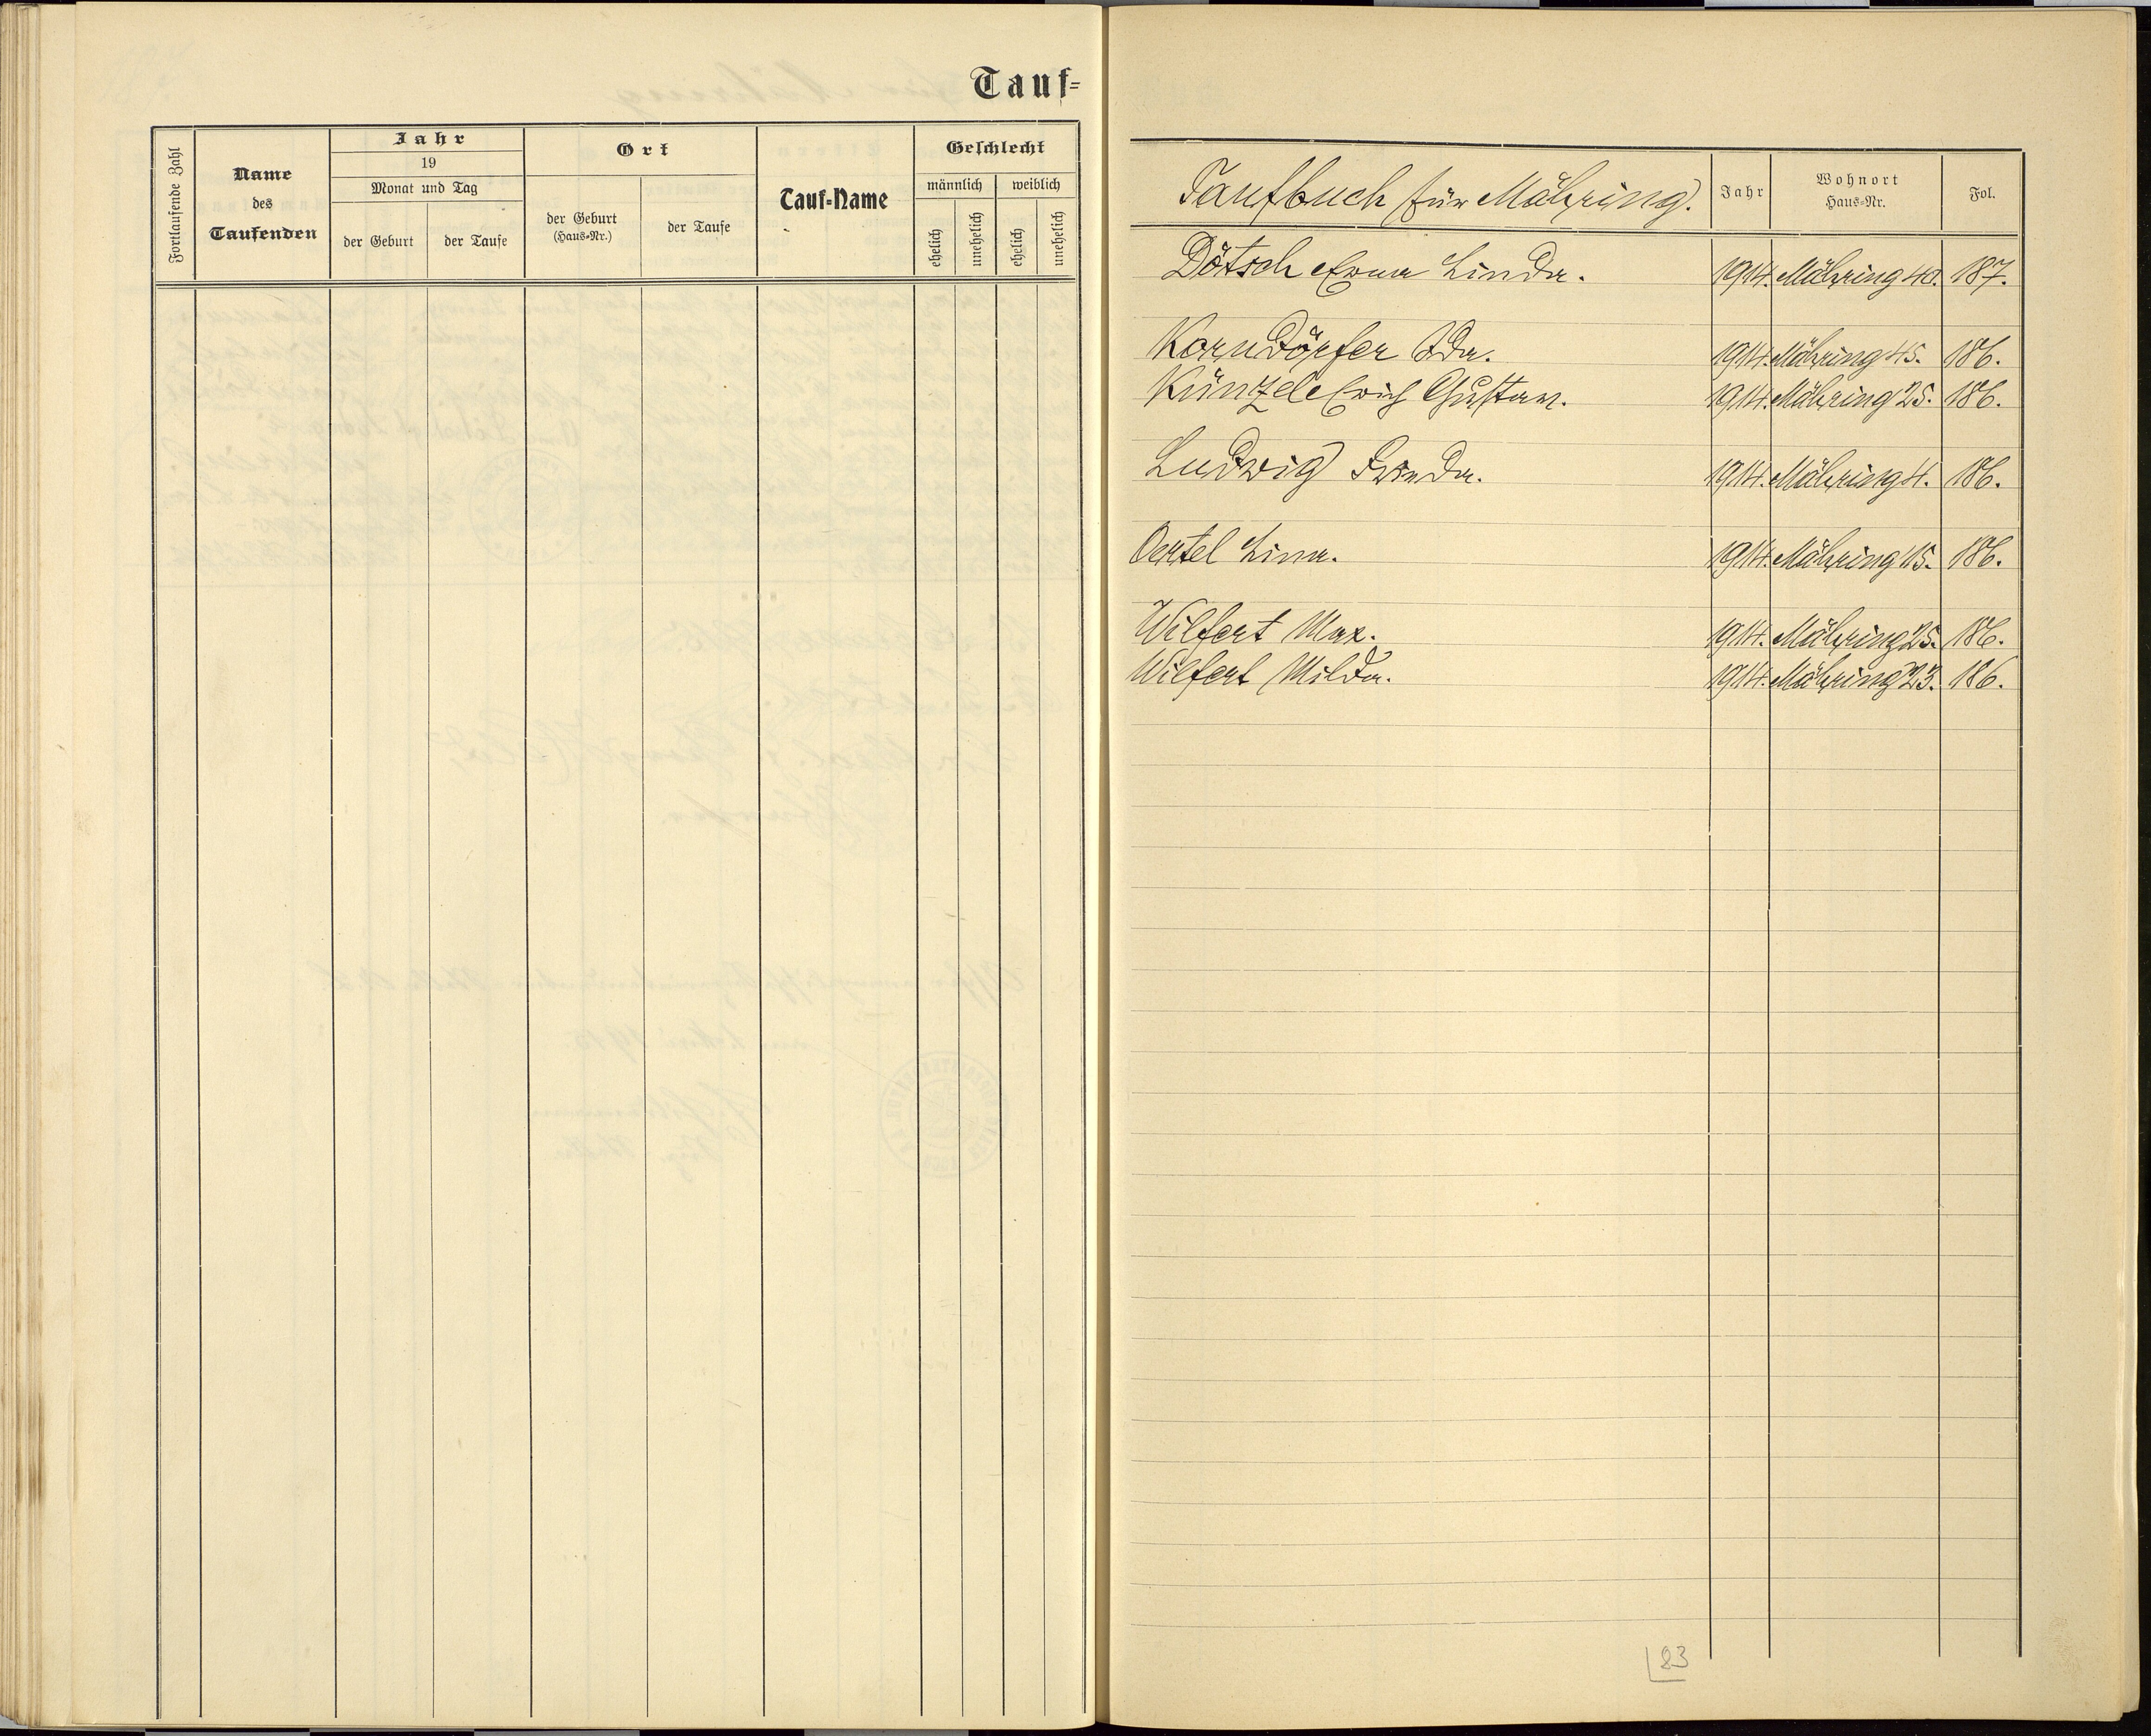 Tauf=
Fortlaufende Zahl
Name
des
Taufenden
Jahr
19
Monat und Tag
der Geburt
der Taufe
Ort
der Geburt
(Haus=Nr.)
der Taufe
Tauf=Name
Geschlecht
männlich
weiblich
ehelich
unehelich
ehelich
unehelich
Taufbuch für Mähring. Jahr Wohnort Haus=Nr. Fol.
Dötsch Erna Linda. 1914. Mähring 40. 187.
Korndörfer Ida. 1914. Mähring 45. 186.
Künzel Erich Gustav. 1914. Mähring 25. 186.
Ludwig Frieda. 1914. Mähring 4. 186.
Oertel Lina. 1914. Mähring 15. 186.
Wilfert Max. 1914. Mähring 25. 186.
Wilfert Milda. 1914. Mähring 23. 186.
83